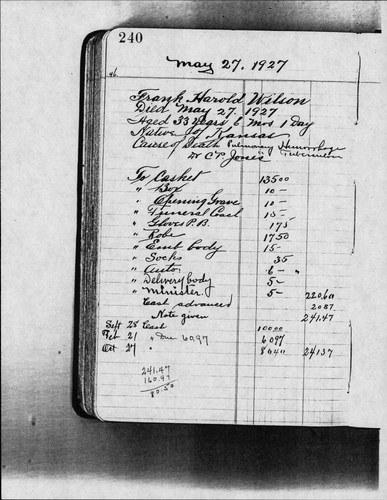 240
May 27, 1927
Frank Harold Wilson
Died May 27, 1927
Aged 33 years 6 Mos 1 Day
Native of Kansas
Cause of Death Pulmonary Hemorrhage
Dr C P Jones Tuberculosis
To Casket 135 00
" Box 10 -
" Opening Grave 10 -
" Funeral Coach 15 -
" Gloves P.B. 1 75
" Robe 17 50
" Emb body 15 -
" Socks 35
" Auto 6 -
" Delivery body 5 -
" Minister 5 - 220 60
Cash advanced 20 87
Note given 241.47
Sept 28 Cash 100 00
Feb 21 " Due 60.97 60 97
Oct 27 "
241.47
160.97
80.50